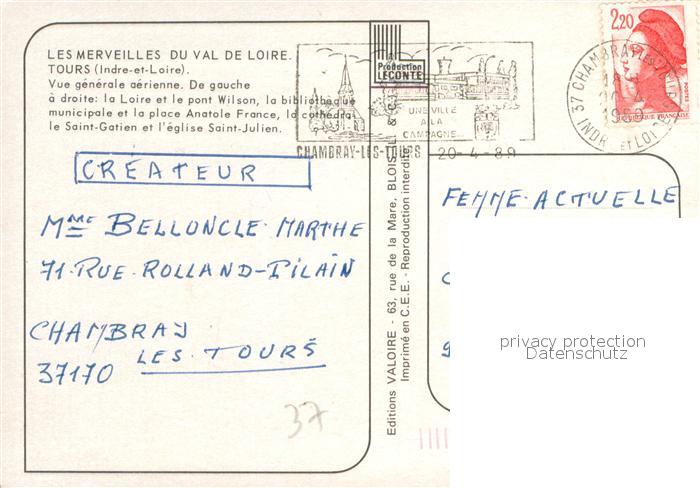 LES MERVEILLES DU VAL DE LOIRE.
TOURS (Indre-et-Loire).
Vue générale aérienne. De gauche
à droite: la Loire et le pont Wilson, la bibliothèque
municipale et la place Anatole France, la cathédrale
le Saint-Gatien et l'église Saint-Julien.
Production
LECONTE
UNE VILLE
A LA
CAMPAGNE...
CHAMBRAY-LES-TOURS 20-4-89
2,20
37 CHAMBRAY LES TOURS
INDRE ET LOIRE
CRÉATEUR
Mme BELLONCLE MARTHE
71-RUE-ROLLAND-PILAIN
CHAMBRAY
LES-TOURS
37170
37
Editions VALOIRE - 63, rue de la Mare, BLOIS
Imprimé en C.E.E. - Reproduction interdite
FEMME-ACTUELLE
privacy protection
Datenschutz